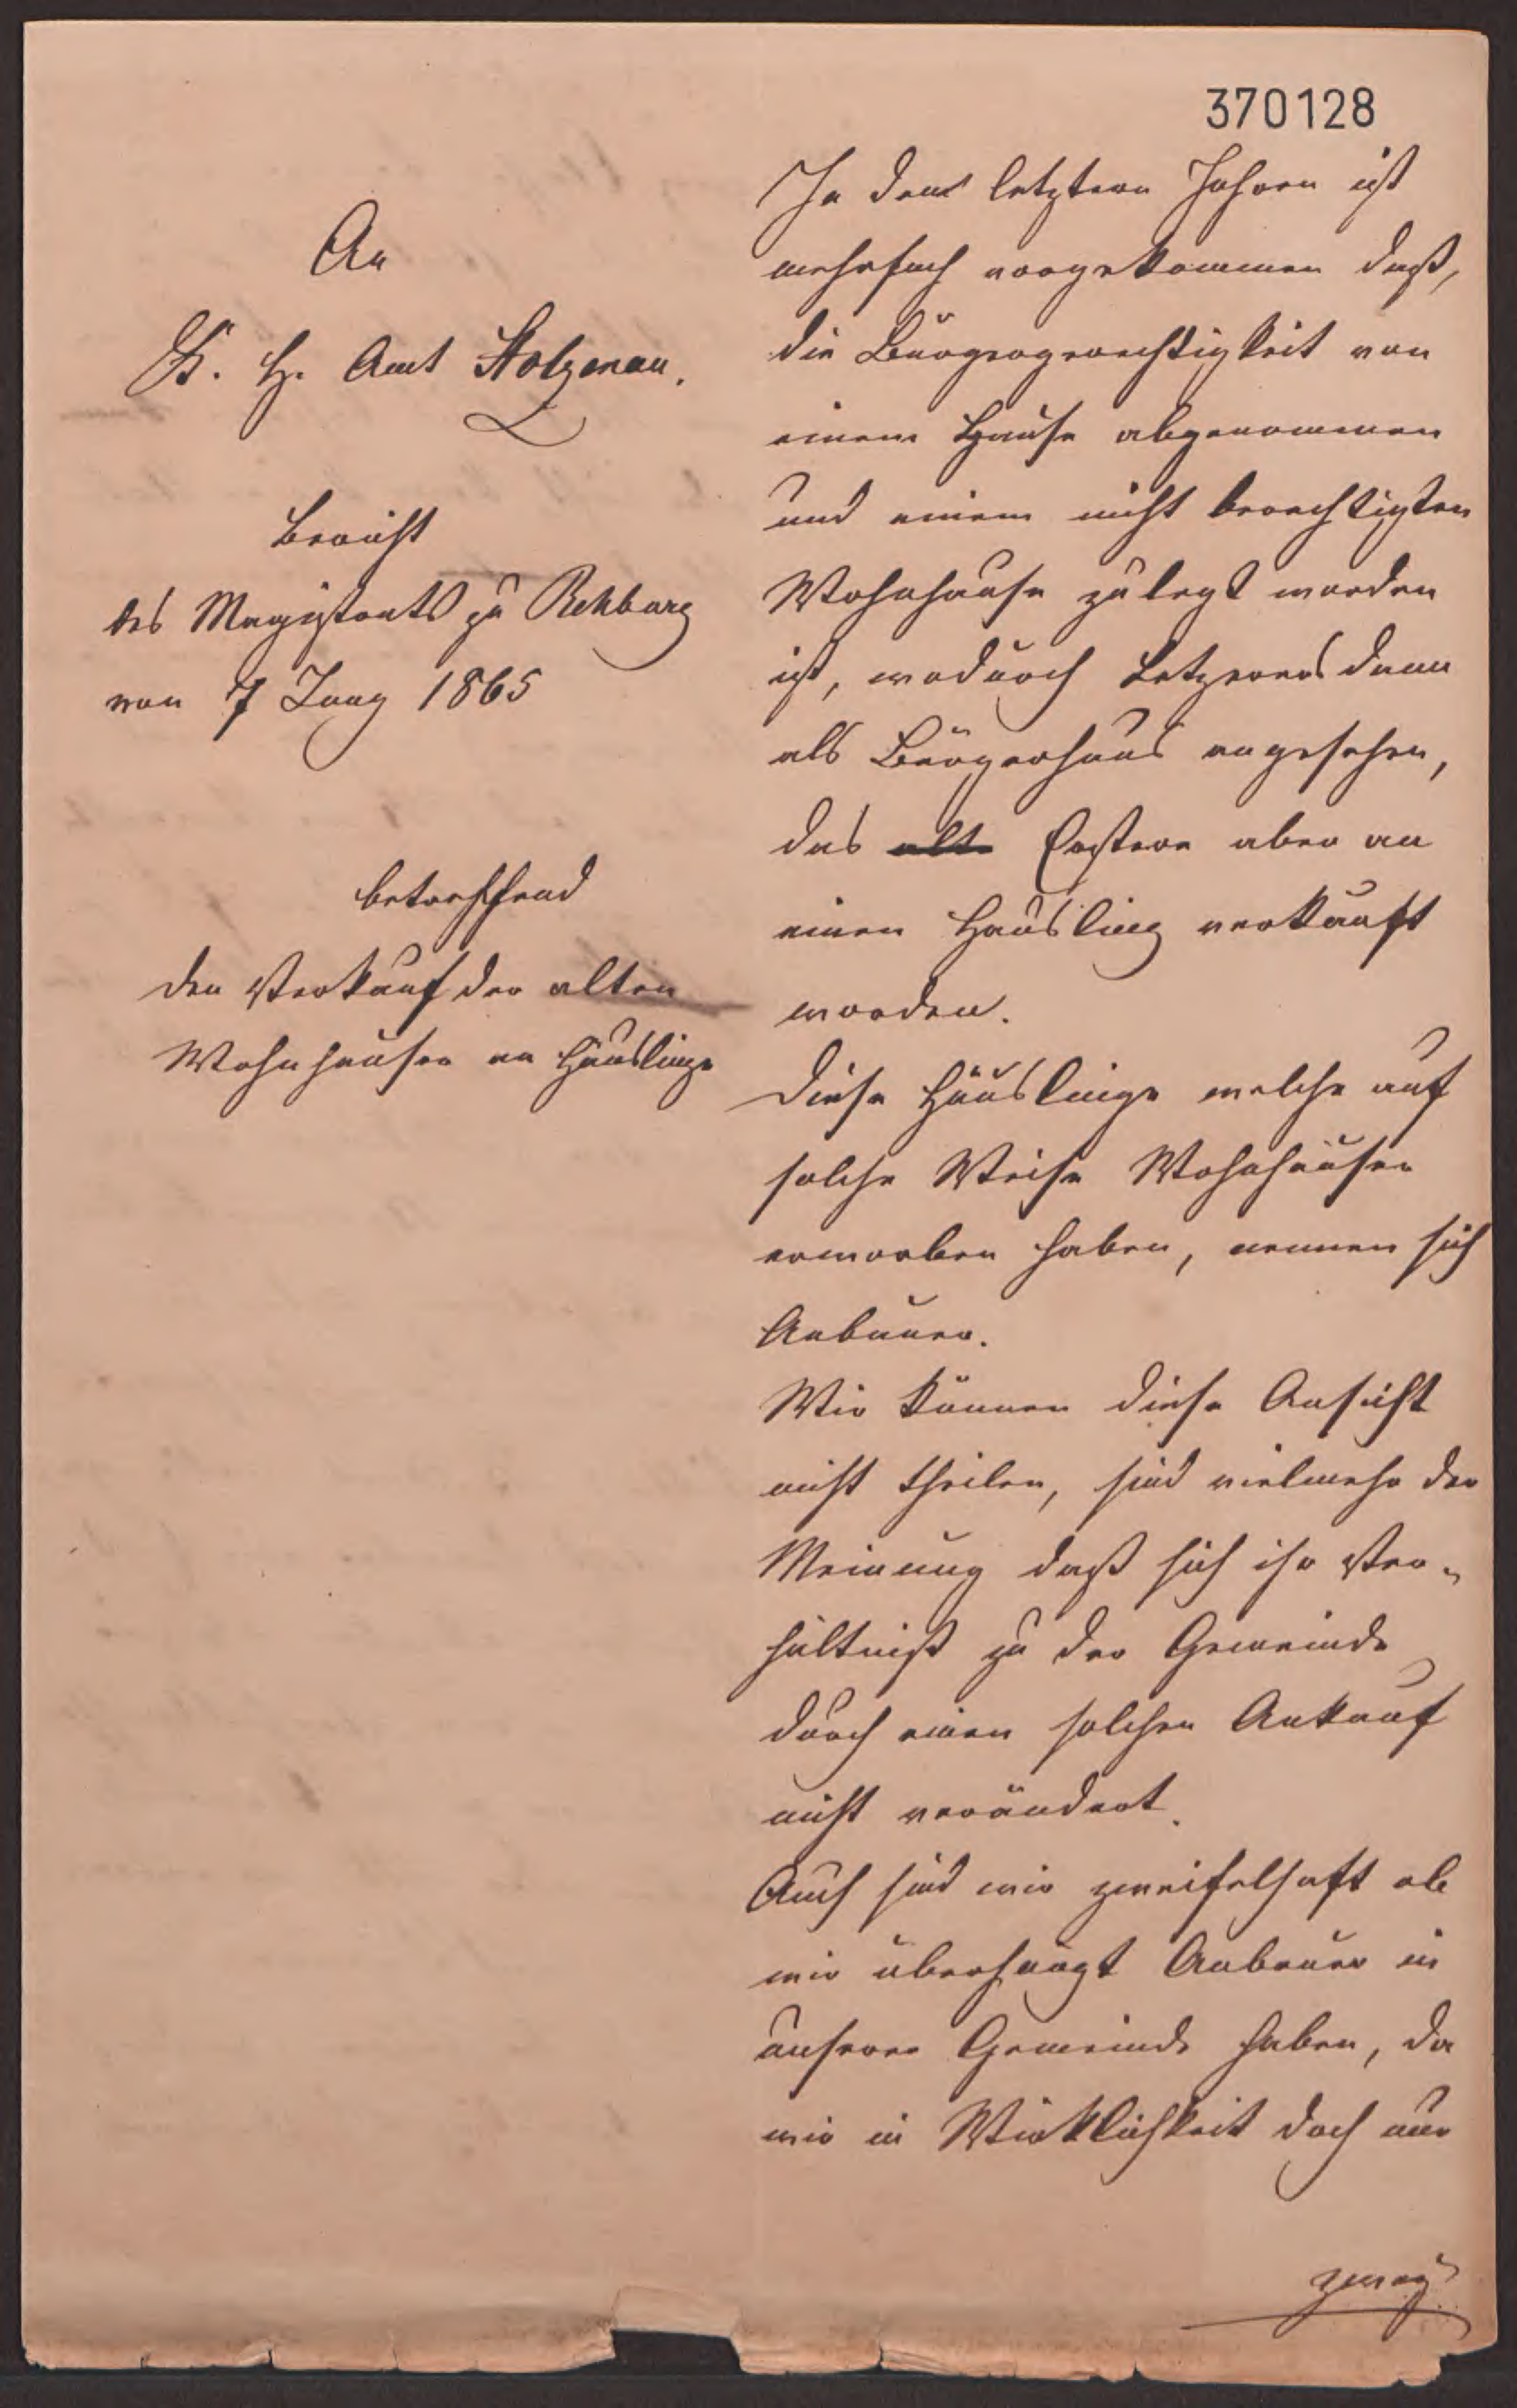 370128
An
K. H. Amt Stolzenau.
Bericht
des Magistrats zu Rehburg
von 7 Juny 1865
betreffend
den Verkauf der alten
Wohnhäuser an Häuslinge
In den letztern Jahren ist
mehrfach vorgekommen daß,
die Bürgergerechtigkeit von
einem Hause abgenommen
und einem nicht berechtigten
Wohnhause zulegt worden
ist, wodurch Letzeres dann
als Bürgerhaus angesehen,
das alte Erstere aber an
einen Häusling verkauft
worden.
Diese Häuslinge welche auf
solche Weise Wohnhäuser
erworben haben, nennen sich
Anbauer.
Wir können diese Ansicht
nicht theilen, sind vielmehr der
Meinung daß sich ihr Ver-
hältniß zu der Gemeinde
durch einen solchen Ankauf
nicht verändert.
Auch sind wir zweifelhaft ob
wir überhaupt Anbauer in
unserer Gemeinde haben, da
wir in Wirklichkeit doch nur
zwey